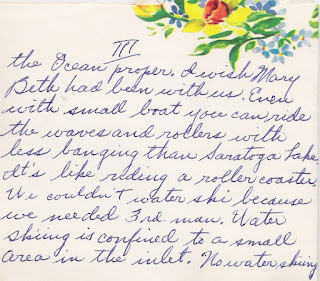 III
the Ocean proper. I wish Mary
Beth had been with us. Even
with small boat you can ride
the waves and rollers with
less banging than Saratoga Lake.
It's like riding a roller coaster.
We couldn't water ski because
we needed 3rd. man. Water
skiing is confined to a small
area in the inlet. No water skiing